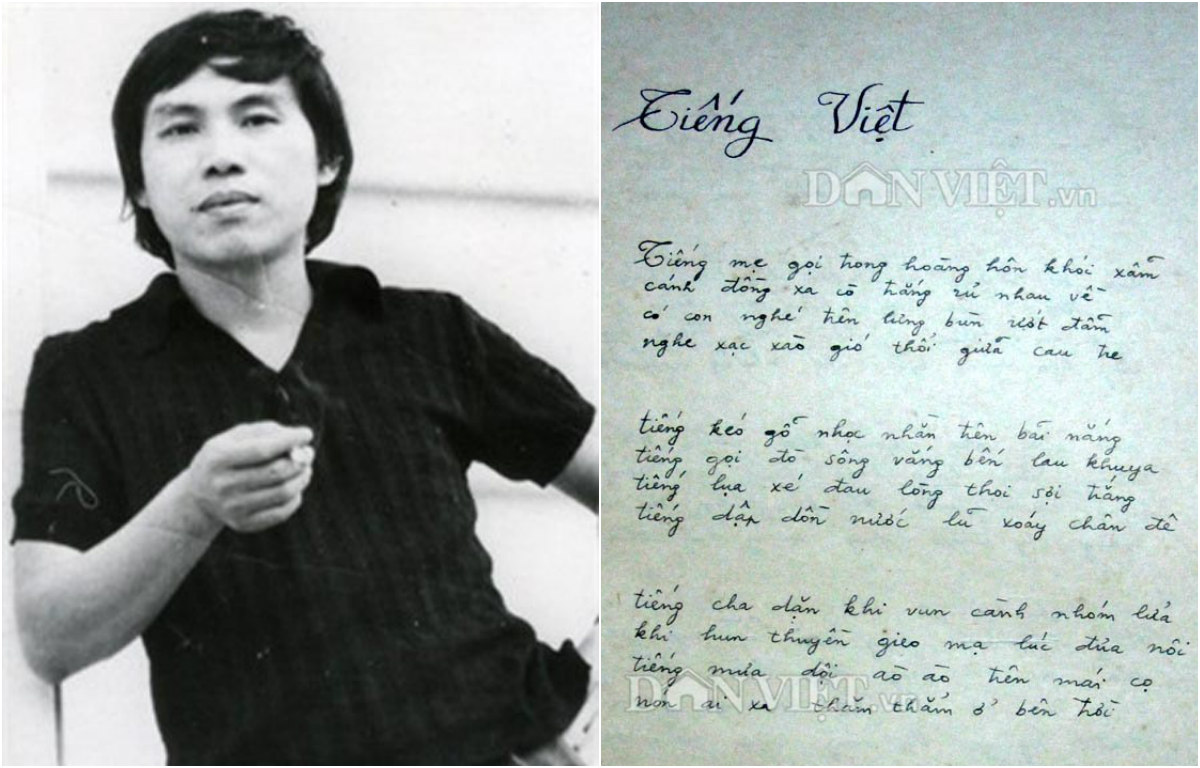 Tiếng Việt
DÂN VIỆT.vn
Tiếng mẹ gọi trong hoàng hôn khói xẫm
cánh đồng xa cò trắng rủ nhau về
có con nghé trên lưng bùn ướt đẫm
nghe xạc xào gió thổi giữa cau tre
tiếng kéo gỗ nhọc nhằn trên bãi nắng
tiếng gọi đò sông vắng bến lau khuya
tiếng lụa xé đau lòng thoi sợi trắng
tiếng dập dồn nước lũ xoáy chân đê
tiếng cha dặn khi vun cành nhóm lửa
khi hun thuyền gieo mạ lúc đưa nôi
tiếng mưa dội ào ào trên mái cọ
DÂN VIỆT.vn
nón ai xa thăm thẳm ở bên trời